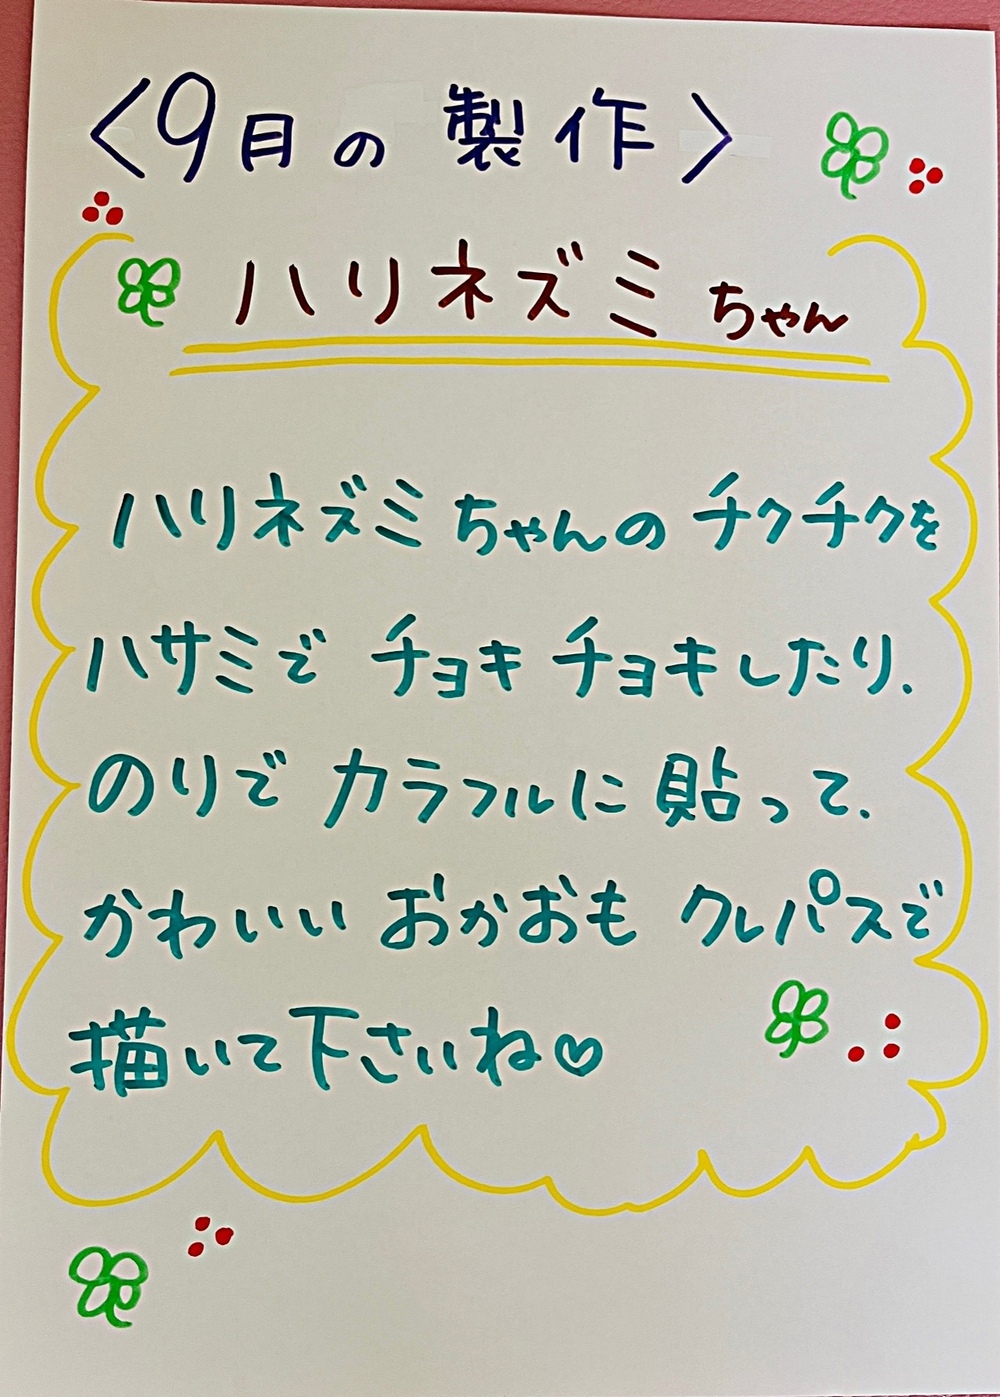 〈9月の製作〉
ハリネズミちゃん
ハリネズミちゃんのチクチクを
ハサミでチョキチョキしたり、
のりでカラフルに貼って、
かわいいおかおもクレパスで
描いて下さいね♡